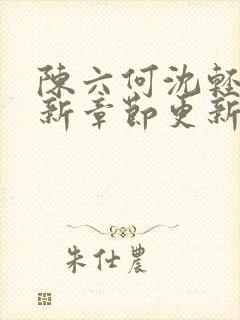 陳六何沈輕
新章節更新
朱仕農